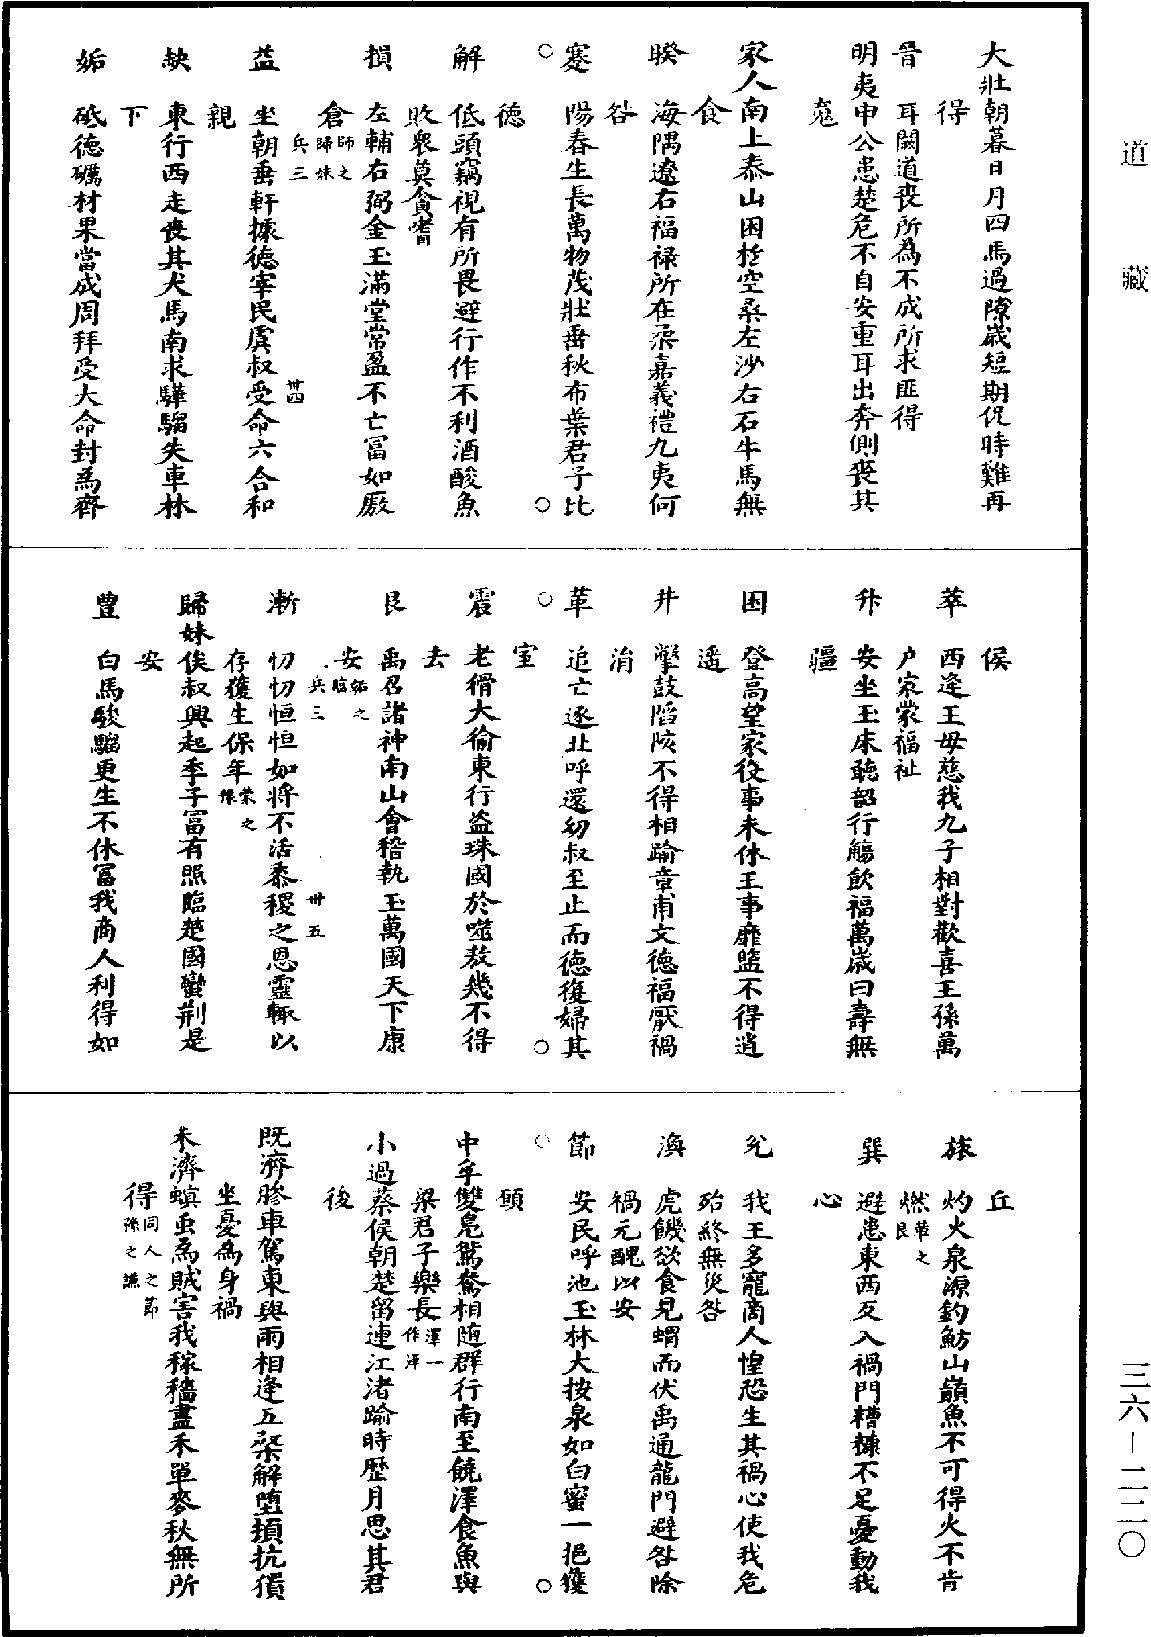 道藏
大壯朝暮日月四馬過隙歲短期促時難再
得
晉 耳闕道喪所為不成所求匪得
明夷申公患楚危不自安重耳出奔側喪其
寬
家人南上泰山困於空桑左沙右石牛馬無
食
睽 海隅遼右福祿所在柔嘉義禮九夷何
咎
蹇 陽春生長萬物茂壯垂秋布葉君子比
德
解 低頭竊視有所畏避行作不利酒酸魚
敗眾莫貪嗜
損 左輔右弼金玉滿堂常盈不亡富如厫
倉師之歸妹
兵三
卅四
益 坐朝垂軒據德宰民虞叔受命六合和
親
夬 東行西走喪其犬馬南求驊騮失車林
下
姤 砥德礪材果當成周拜受大命封為齊
侯
萃 西逢王母慈我九子相對歡喜王孫萬
戶家蒙福祉
升 安坐玉床聽韶行觴飲福萬歲曰壽無
疆
困 登高望家役事未休王事靡盬不得逍
遙
井 擊鼓陷陔不得相踰章甫文德福厭禍
消
革 追亡逐北呼還幼叔至止而德復婦其
室
震 老猾大偷東行盜珠國於噬敖幾不得
去
艮 禹召諸神南山會稽執玉萬國天下康
安姤之臨
兵三
卅五
漸 忉忉恒恒如將不活黍稷之恩靈輒以
存獲生保年蒙之豫
歸妹俟叔興起季子富有照臨楚國蠻荊是
安
豐 白馬駿騮更生不休富我商人利得如
丘
旅 灼火泉源釣魴山巔魚不可得火不肯
燃革之艮
巽 避患東西反入禍門糟糠不足憂動我
心
兌 我王多寵商人惶恐生其禍心使我危
殆終無災咎
渙 虎饑欲食見蝟而伏禹通龍門避咎除
禍元醜以安
節 安民呼池玉林大按泉如白蜜一挹獲
願
中孚雙鳧鴛鴦相隨群行南至饒澤食魚與
梁君子樂長澤一作洋
小過蔡侯朝楚留連江渚踰時歷月思其君
後
既濟膠車駕東與雨相逢五楘解墮損抗僨
坐憂為身禍
未濟螟虫為賊害我稼穡盡禾單麥秋無所
得同人之節孫之謙
三六—二二〇